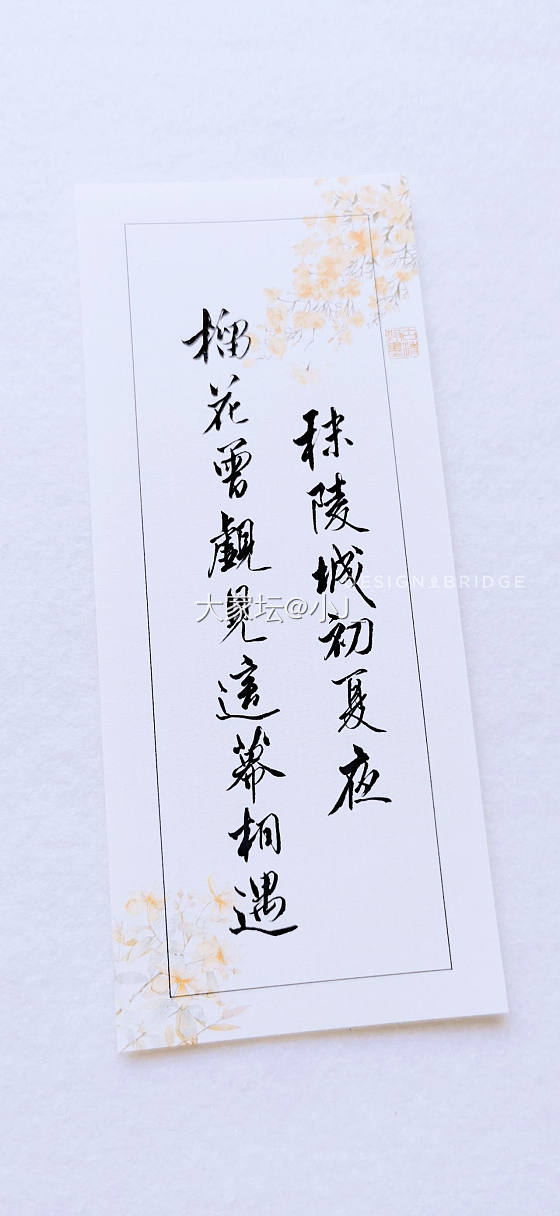 秣陵城初夏夜
榴花曾觀見這幕相遇
大家坛@小J
DESIGN BRIDGE